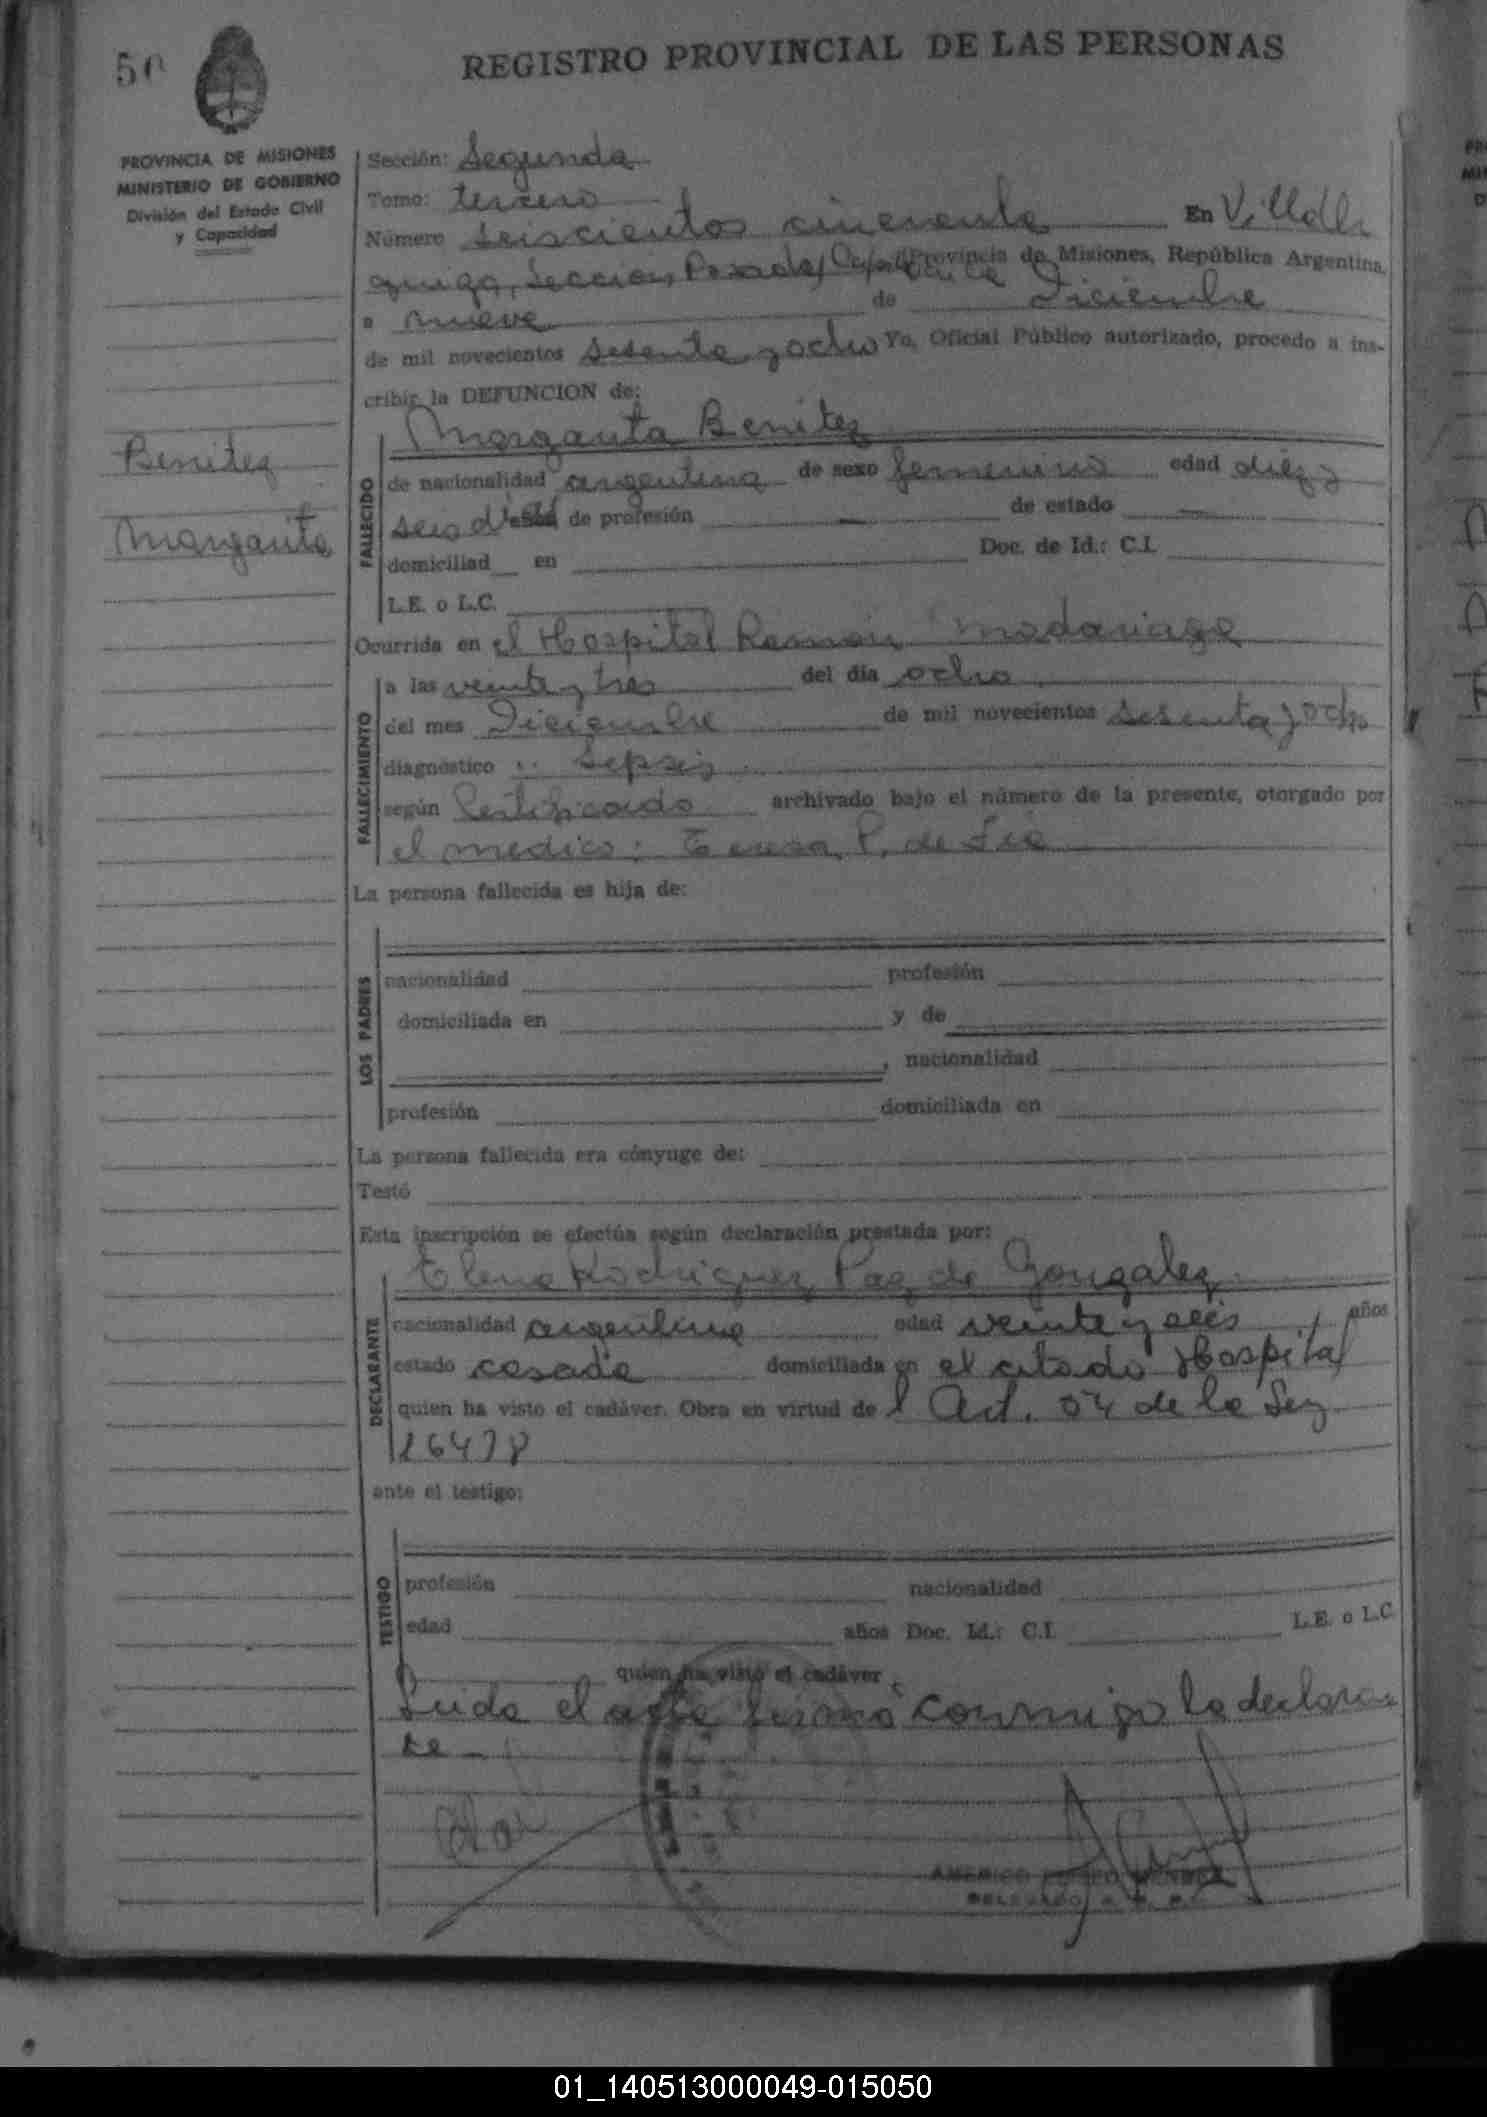 50
REGISTRO PROVINCIAL DE LAS PERSONAS
PROVINCIA DE MISIONES
MINISTERIO DE GOBIERNO
División del Estado Civil
y Capacidad
Sección: Segunda
Tomo: tercero
Número seiscientos cincuenta En Villa
Sección, Posadas, Capital Provincia de Misiones, República Argentina,
a nueve de Diciembre
de mil novecientos sesenta y ocho Yo, Oficial Público autorizado, procedo a ins-
cribir la DEFUNCION de:
Margarita Benitez
Benitez
Margarita
FALLECIDO
de nacionalidad argentina de sexo femenino edad diez y
seis días de profesión — de estado —
domiciliad en Doc. de Id.: C.I.
L.E. o L.C.
Ocurrida en el Hospital Ramón Madariaga
FALLECIMIENTO
a las veinte y tres del día ocho
del mes Diciembre de mil novecientos sesenta y ocho
diagnóstico : Sepsis
según Certificado archivado bajo el número de la presente, otorgado por
el medico: Teresa P. de
La persona fallecida es hija de:
LOS PADRES
nacionalidad profesión
domiciliada en y de
, nacionalidad
profesión domiciliada en
La persona fallecida era cónyuge de:
Testó
Esta inscripción se efectúa según declaración prestada por:
Elena Rodriguez Paz de Gonzalez
DECLARANTE
nacionalidad argentina edad veinte y seis años
estado casada domiciliada en el citado Hospital
quien ha visto el cadáver. Obra en virtud del Art. 54 de la Ley
16478
ante el testigo:
TESTIGO
profesión nacionalidad
edad años Doc. Id.: C.I. L.E. o L.C.
quien ha visto el cadáver
Leida el acta firmó conmigo la declaran
te —
AMERICO
DELEGADO
01_140513000049-015050